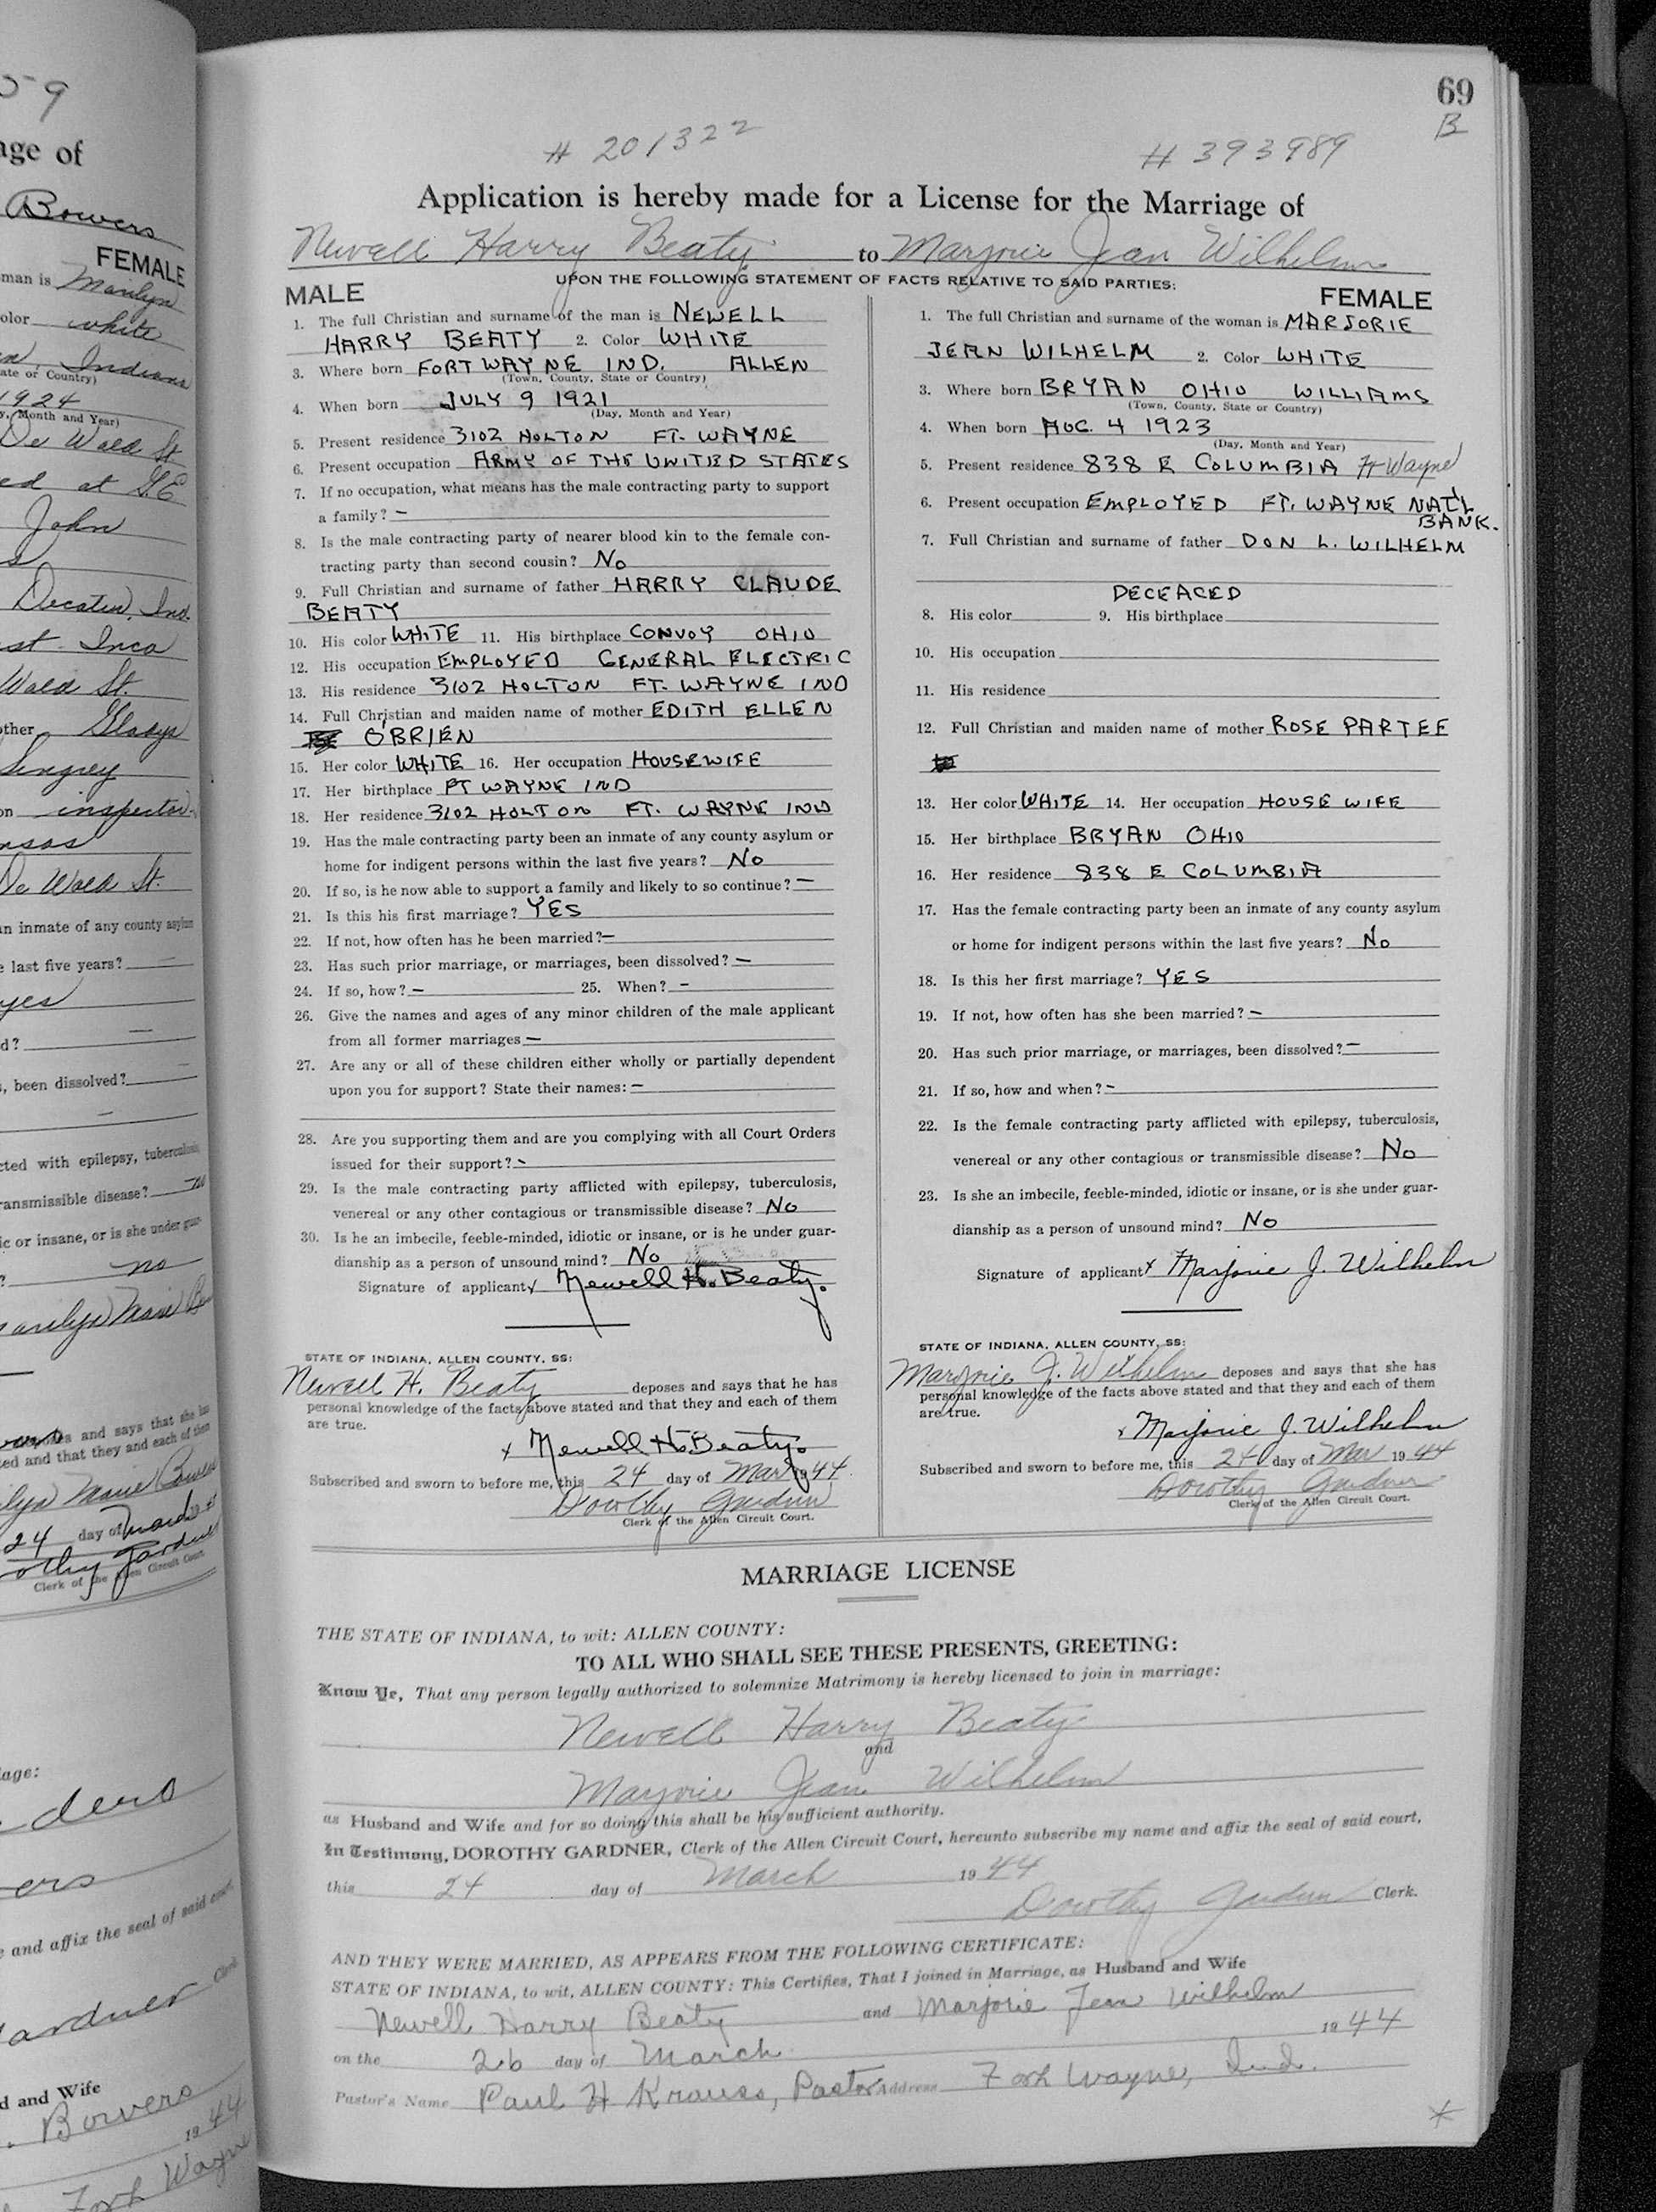 59
age of
Bowers
FEMALE
man is Marilyn
olor white
Indiana
ate or Country)
1924
y, Month and Year)
De Wald St.
ed at G.E
John
s
Decatur, Ind.
Wald St.
other Gladys
on inspector
nsas
De Wald St.
an inmate of any county asylum
e last five years? —
yes
d? —
s, been dissolved? —
—
cted with epilepsy, tuberculosis,
ransmissible disease? no
ic or insane, or is she under guar-
? no
arilyn Marie
and says that she has
ed and that they and each of them
ilyn Marie Bowers
24 day of March
othy Gardner
Clerk of the Allen Circuit Court.
iage:
ders
ers
e and affix the seal of said court,
ardner Clerk
d and Wife
. Bowers
19 44
Fort Wayne
69
B
# 201322 # 393989
Application is hereby made for a License for the Marriage of
Newell Harry Beaty to Marjorie Jean Wilhelm
UPON THE FOLLOWING STATEMENT OF FACTS RELATIVE TO SAID PARTIES:
MALE
1. The full Christian and surname of the man is NEWELL
HARRY BEATY 2. Color WHITE
3. Where born FORT WAYNE IND. ALLEN
(Town, County, State or Country)
4. When born JULY 9 1921
(Day, Month and Year)
5. Present residence 3102 HOLTON FT. WAYNE
6. Present occupation ARMY OF THE UNITED STATES
7. If no occupation, what means has the male contracting party to support
a family? —
8. Is the male contracting party of nearer blood kin to the female con-
tracting party than second cousin? No
9. Full Christian and surname of father HARRY CLAUDE
BEATY
10. His color WHITE 11. His birthplace CONVOY OHIO
12. His occupation EMPLOYED GENERAL ELECTRIC
13. His residence 3102 HOLTON FT. WAYNE IND
14. Full Christian and maiden name of mother EDITH ELLEN
O'BRIEN
15. Her color WHITE 16. Her occupation HOUSEWIFE
17. Her birthplace FT WAYNE IND
18. Her residence 3102 HOLTON FT. WAYNE IND
19. Has the male contracting party been an inmate of any county asylum or
home for indigent persons within the last five years? No
20. If so, is he now able to support a family and likely to so continue? —
21. Is this his first marriage? YES
22. If not, how often has he been married? —
23. Has such prior marriage, or marriages, been dissolved? —
24. If so, how? — 25. When? —
26. Give the names and ages of any minor children of the male applicant
from all former marriages —
27. Are any or all of these children either wholly or partially dependent
upon you for support? State their names: —
28. Are you supporting them and are you complying with all Court Orders
issued for their support? -
29. Is the male contracting party afflicted with epilepsy, tuberculosis,
venereal or any other contagious or transmissible disease? No
30. Is he an imbecile, feeble-minded, idiotic or insane, or is he under guar-
dianship as a person of unsound mind? No
Signature of applicant x Newell H. Beaty.
STATE OF INDIANA, ALLEN COUNTY, SS:
Newell H. Beaty deposes and says that he has
personal knowledge of the facts above stated and that they and each of them
are true.
x Newell H. Beaty.
Subscribed and sworn to before me, this 24 day of Mar 1944
Dorothy Gardner
Clerk of the Allen Circuit Court.
FEMALE
1. The full Christian and surname of the woman is MARJORIE
JEAN WILHELM 2. Color WHITE
3. Where born BRYAN OHIO WILLIAMS
(Town, County, State or Country)
4. When born AUG. 4 1923
(Day, Month and Year)
5. Present residence 838 E COLUMBIA Ft Wayne
6. Present occupation EMPLOYED FT. WAYNE NAT'L
BANK.
7. Full Christian and surname of father DON L. WILHELM
DECEASED
8. His color 9. His birthplace
10. His occupation
11. His residence
12. Full Christian and maiden name of mother ROSE PARTEE
13. Her color WHITE 14. Her occupation HOUSE WIFE
15. Her birthplace BRYAN OHIO
16. Her residence 838 E COLUMBIA
17. Has the female contracting party been an inmate of any county asylum
or home for indigent persons within the last five years? No
18. Is this her first marriage? YES
19. If not, how often has she been married? —
20. Has such prior marriage, or marriages, been dissolved? —
21. If so, how and when? -
22. Is the female contracting party afflicted with epilepsy, tuberculosis,
venereal or any other contagious or transmissible disease? No
23. Is she an imbecile, feeble-minded, idiotic or insane, or is she under guar-
dianship as a person of unsound mind? No
Signature of applicant x Marjorie J. Wilhelm
STATE OF INDIANA, ALLEN COUNTY, SS:
Marjorie J. Wilhelm deposes and says that she has
personal knowledge of the facts above stated and that they and each of them
are true.
x Marjorie J. Wilhelm
Subscribed and sworn to before me, this 24 day of Mar 1944
Dorothy Gardner
Clerk of the Allen Circuit Court.
MARRIAGE LICENSE
THE STATE OF INDIANA, to wit: ALLEN COUNTY:
TO ALL WHO SHALL SEE THESE PRESENTS, GREETING:
Know Ye, That any person legally authorized to solemnize Matrimony is hereby licensed to join in marriage:
Newell Harry Beaty
and
Marjorie Jean Wilhelm
as Husband and Wife and for so doing this shall be his sufficient authority.
In Testimony, DOROTHY GARDNER, Clerk of the Allen Circuit Court, hereunto subscribe my name and affix the seal of said court,
this 24 day of March 1944
Dorothy Gardner Clerk.
AND THEY WERE MARRIED, AS APPEARS FROM THE FOLLOWING CERTIFICATE:
STATE OF INDIANA, to wit, ALLEN COUNTY: This Certifies, That I joined in Marriage, as Husband and Wife
Newell Harry Beaty and Marjorie Jean Wilhelm
on the 26 day of March 1944
Pastor's Name Paul H Krauss, Pastor Address Fort Wayne, Ind.